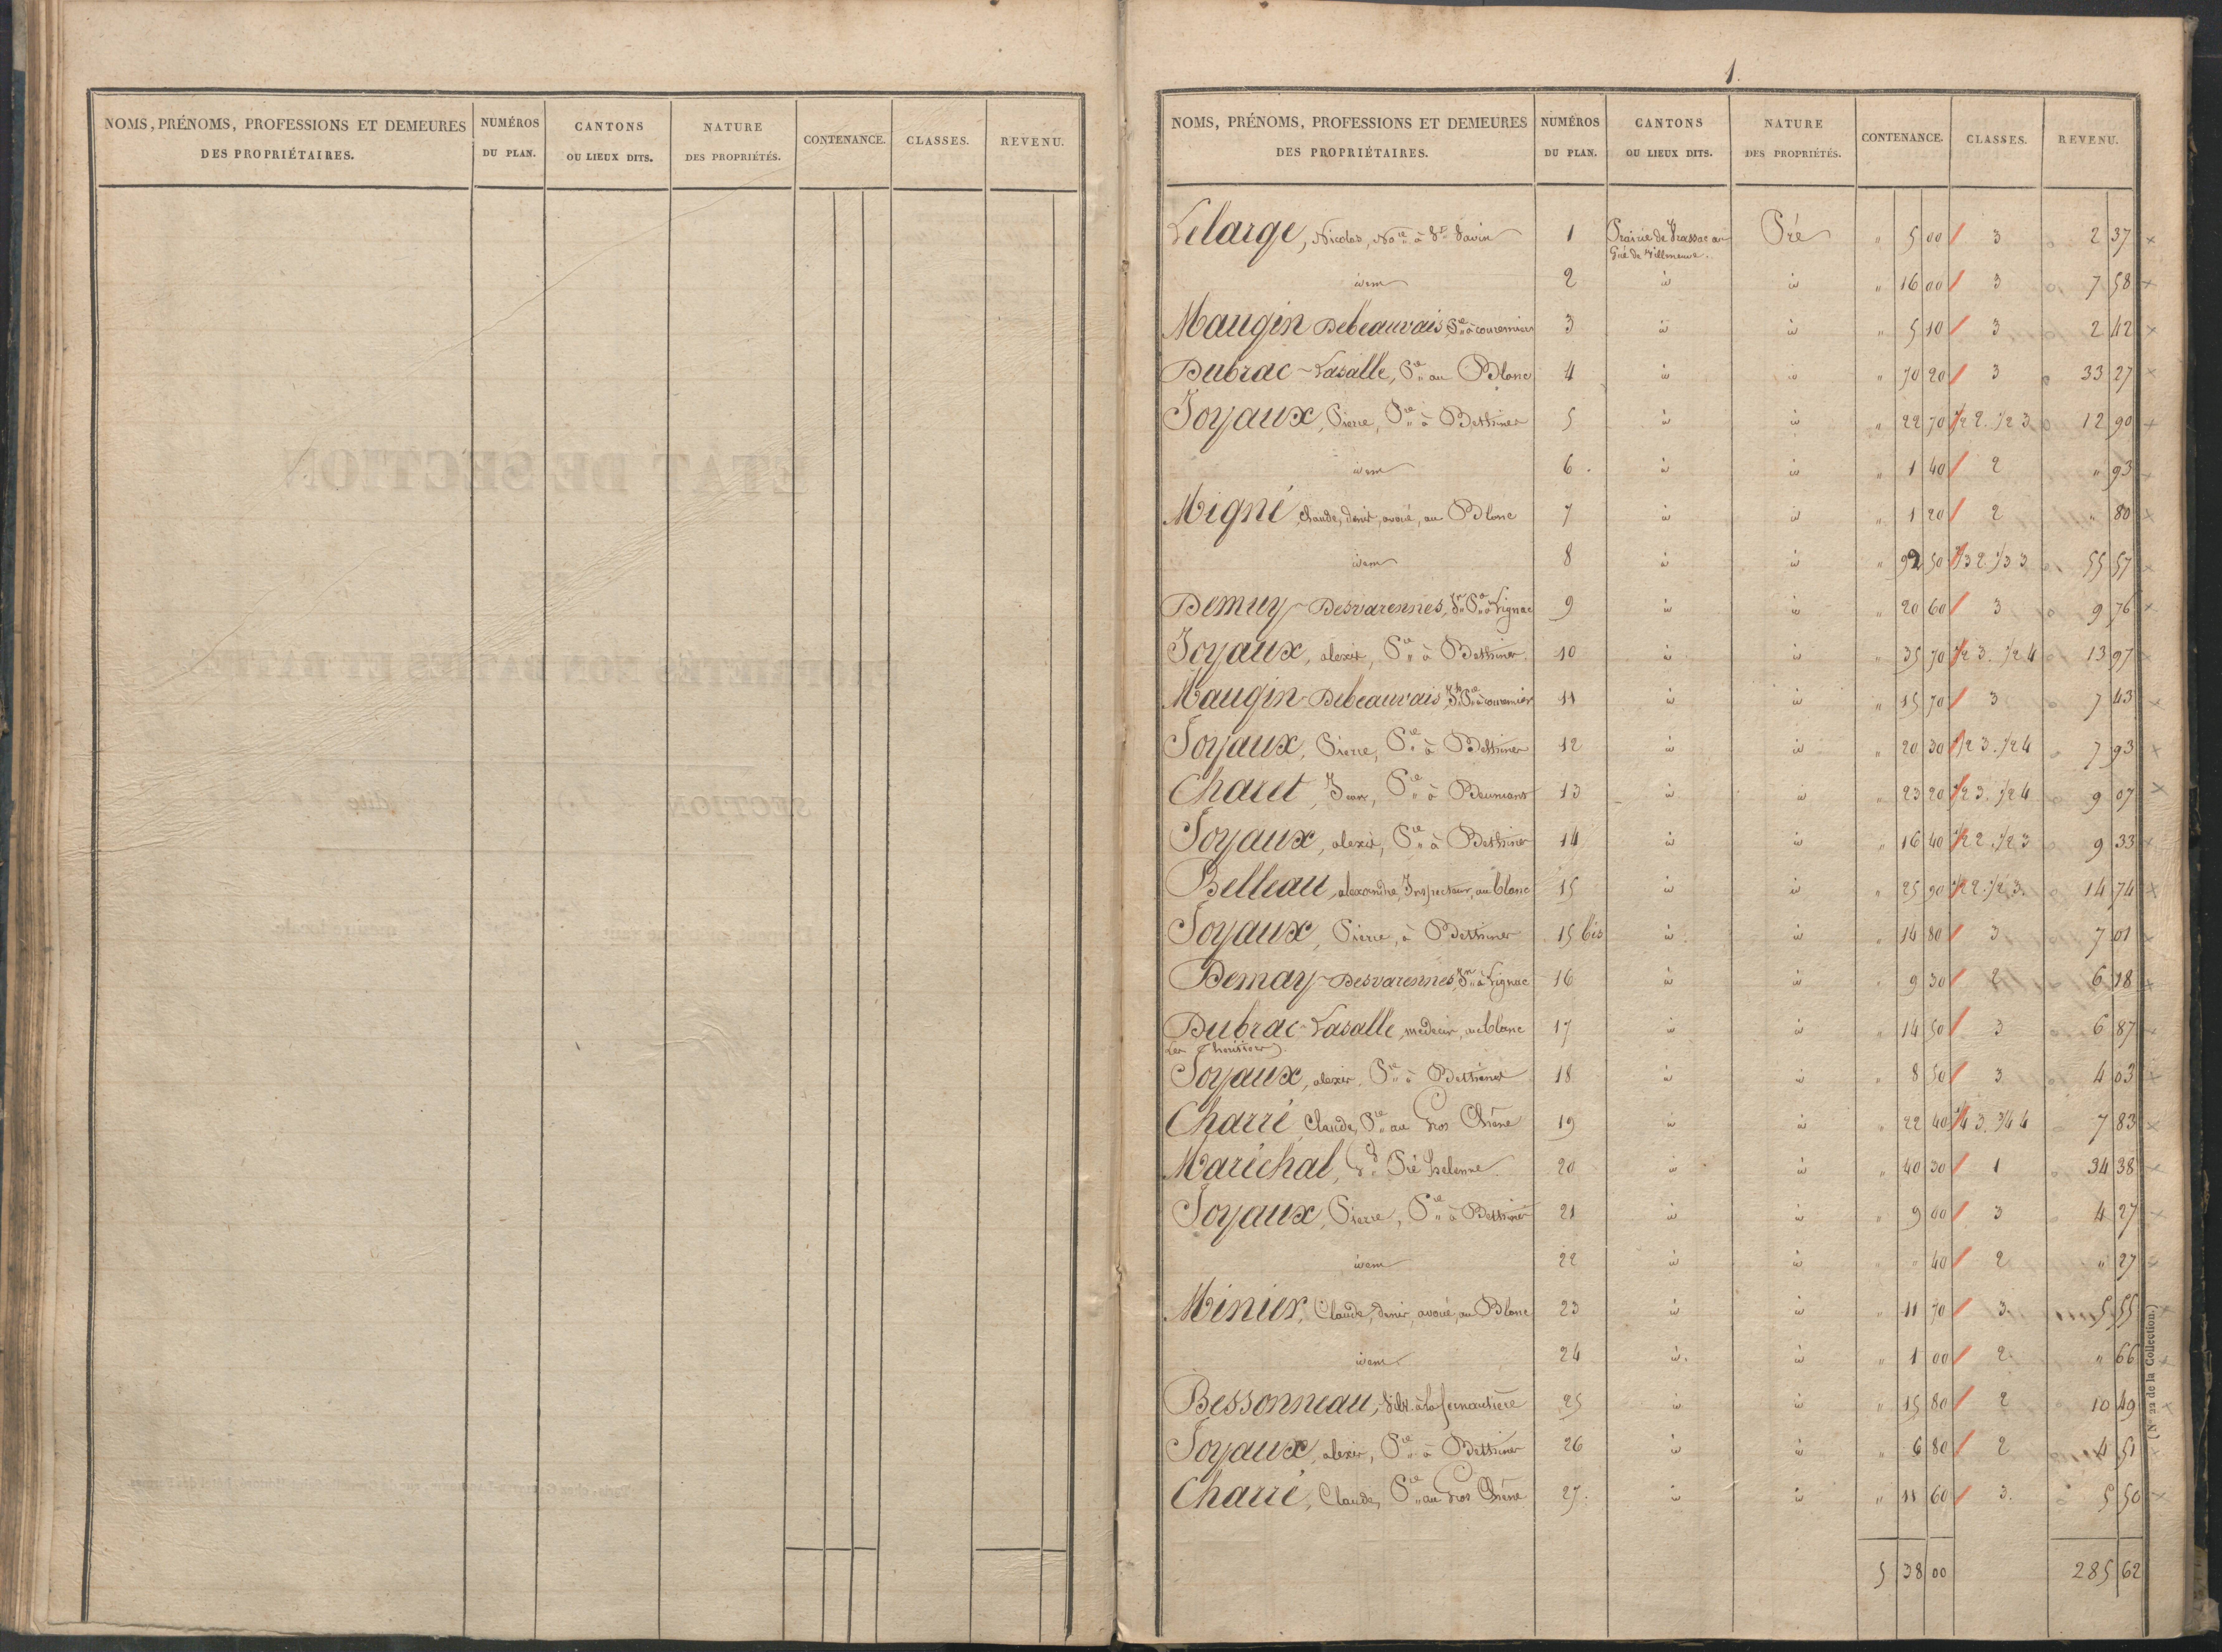 NOMS, PRÉNOMS, PROFESSIONS ET DEMEURES DES PROPRIÉTAIRES. NUMÉROS DU PLAN. CANTONS OU LIEUX DITS. NATURE DES PROPRIÉTÉS. CONTENANCE. CLASSES. REVENU.
1.
NOMS, PRÉNOMS, PROFESSIONS ET DEMEURES DES PROPRIÉTAIRES. NUMÉROS DU PLAN. CANTONS OU LIEUX DITS. NATURE DES PROPRIÉTÉS. CONTENANCE. CLASSES. REVENU.
Lelarge, Nicolas, No.re à St Savin 1 Prairie de au Gué de Villeneuve. Pré " 5 00 3 2 37 x
idem 2 id id " 16 00 3 7 58 x
Maugin Debeauvais, P.re à 3 id id " 5 10 3 2 42 x
Dubrac-Lasalle, P.re au Blanc 4 id id " 70 20 3 33 27 x
Joyaux, Pierre, P.re à Bethines 5 id id " 22 70 1/2 2. 1/2 3 12 90 x
idem 6. id id " 1 40 2 " 93 x
Migné, Claude, denis, avoué, au Blanc 7 id id " 1 20 2 " 80 x
idem 8 id id " 92 50 1/3 2. 1/3 3 55 57 x
Demay-Desvarennes, J.n P.re à Lignac 9 id id " 20 60 3 9 76 x
Joyaux, alexis, P.re à Bethines. 10 id id " 35 70 1/2 3. 1/2 4 13 97 x
Maugin-Debeauvais, P.re à 11 id id " 15 70 3 7 43 x
Joyaux, Pierre, P.re à Bethines 12 id id " 20 30 1/2 3. 1/2 4 7 93 x
Charet, Jean, P.re à 13 id id " 23 20 1/2 3. 1/2 4 9 07 x
Joyaux, alexis, P.re à Bethines 14 id id " 16 40 1/2 2. 1/2 3 9 33 x
Belleau, alexandre, Inspecteur, au blanc 15 id id " 25 90 1/2 2. 1/2 3. 14 74 x
Joyaux, Pierre, à Bethines 15 bis id id " 14 80 3 7 01 x
Demay-Desvarennes, J.n à Lignac 16 id id " 9 30 2 6 18 x
Dubrac-Lasalle, médecin, au blanc 17 id id " 14 50 3 6 87 x
Joyaux, alexis, P.re à Bethines 18 id id " 8 50 3 4 03 x
Charré, Claude, P.re au Gros Chêne 19 id id " 22 40 1/4 3. 3/4 4 7 83 x
Maréchal, 20 id id " 40 30 1 34 38 x
Joyaux, Pierre, P.re à Bethines 21 id id " 9 00 3 4 27 x
idem 22 id id " " 40 2 " 27 x
Minier, Claude, denis, avoué, au Blanc 23 id id " 11 70 3. 5 55 x
idem 24 id. id " 1 00 2 " 66 x
Bessonneau, 25 id id " 15 80 2 10 49 x
Joyaux, alexis, P.re à Bethines 26 id id " 6 80 2 4 51 x
Charré, Claude, P.re au Gros Chêne 27. id id " 11 60 3. 5 50 x
5 38 00 285 62
(N° 22 de la Collection.)